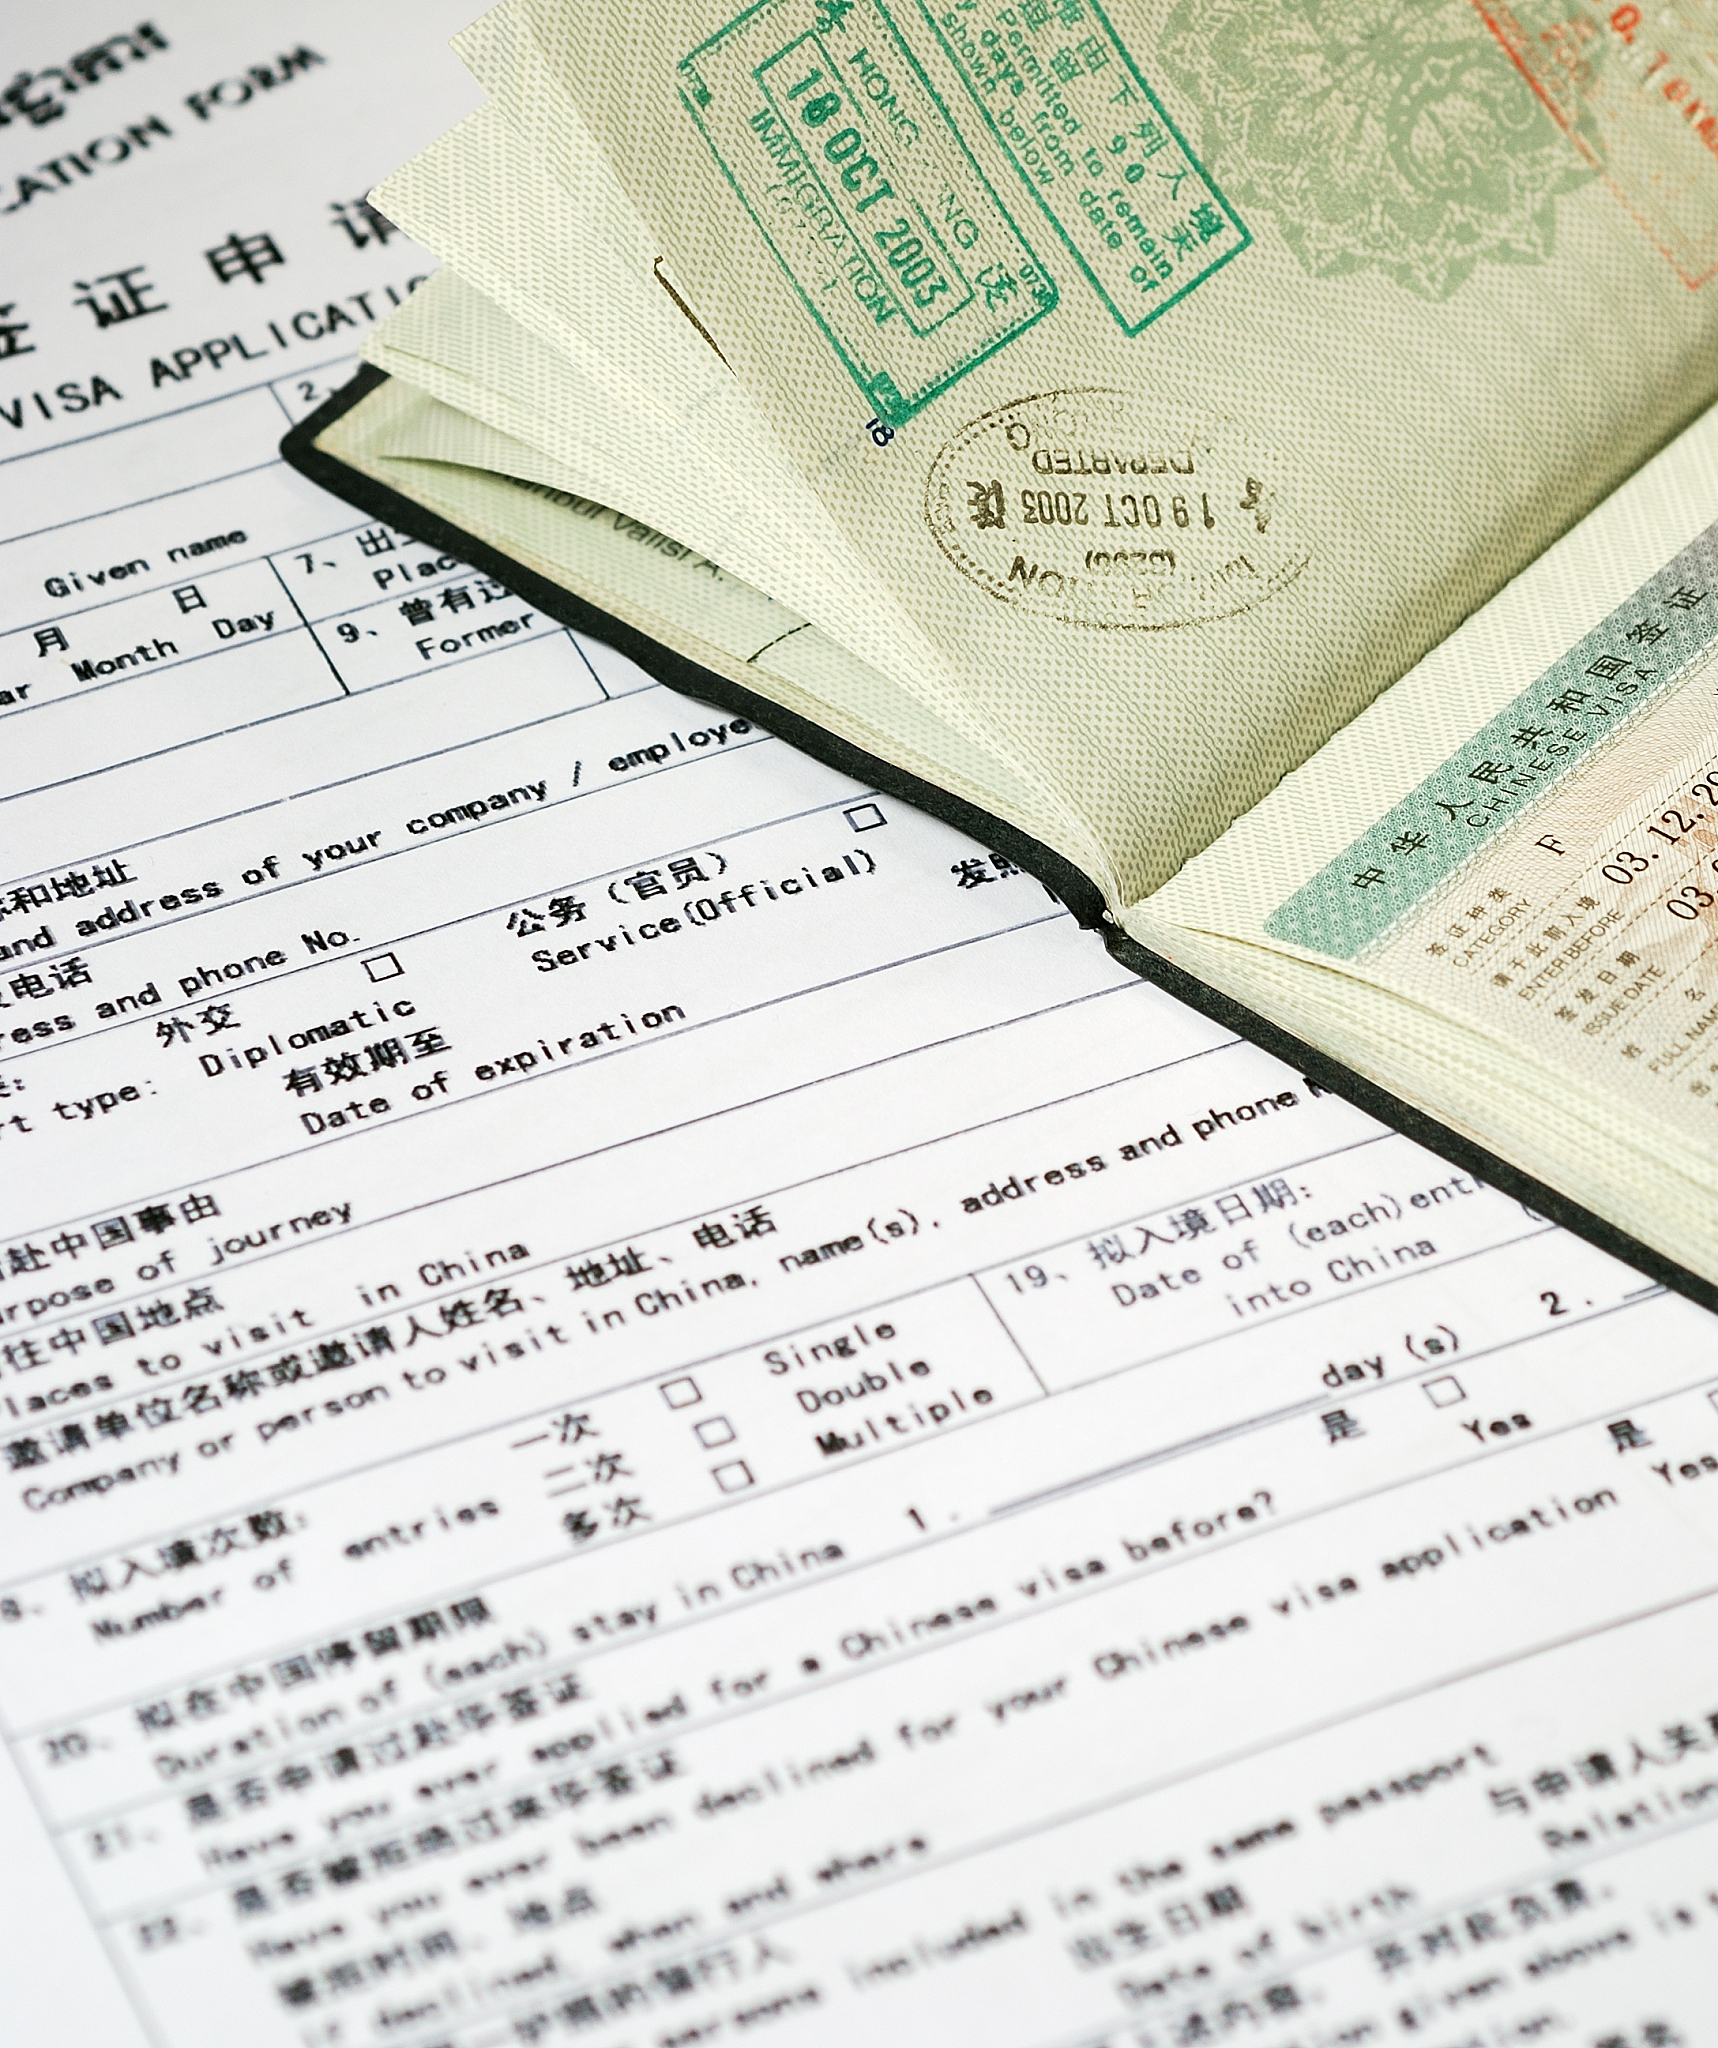 CATION FORM
签 证 申 请
VISA APPLICATIO
2、
Given name
月 日
Month Day
7、出生
Plac
9、曾有过
Former
和地址
and address of your company / employe
电话
ress and phone No.
外交 □
Diplomatic
公务（官员） □
Service(Official)
发照
rt type:
有效期至
Date of expiration
赴中国事由
rpose of journey
往中国地点
laces to visit in China
邀请单位名称或邀请人姓名、地址、电话
Company or person to visit in China, name(s), address and phone N
8、拟入境次数:
Number of entries
一次 □ Single
二次 □ Double
多次 □ Multiple
19、拟入境日期:
Date of (each) entr
into China
20、拟在中国停留期限
Duration of (each) stay in China 1. day (s) 2.
21、是否申请过赴华签证
Have you ever applied for a Chinese visa before?
是 □
Yes
22、是否被拒绝过来华签证
Have you ever been declined for your Chinese visa application
是
Yes
被拒时间、地点
If declined, when and where
persons included in the same passport
出生日期
Date of birth
与申请人关系
Relation
given above is
准由下列入境
逗留 90 天
Permitted to remain
days from date of
shown below
HONG KONG
18 OCT 2003
IMMIGRATION
18
DEPARTED
19 OCT 2003
中华人民共和国签证
CHINESE VISA
签证种类
CATEGORY F
请于此前入境
ENTER BEFORE 03.12.20
签发日期
ISSUE DATE 03.
姓 名
FULL NAME